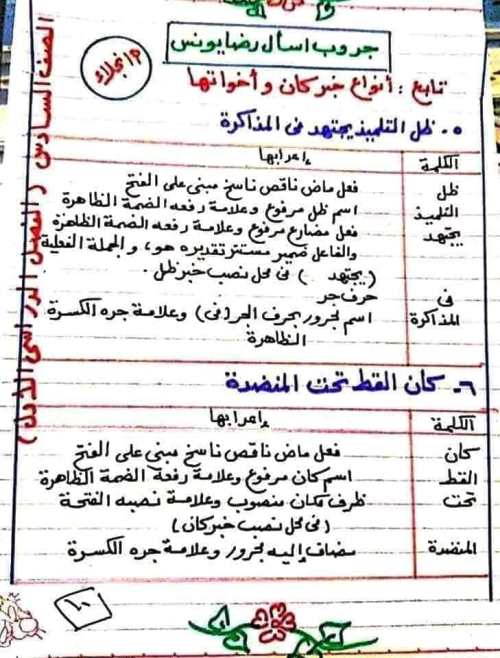 جروب اسأل رضا يونس
م/ نجلاء
تابع : أنواع خبر كان وأخواتها
٥- ظل التلميذ يجتهد فى المذاكرة
الكلمة إعرابها
ظل فعل ماض ناقص ناسخ مبنى على الفتح
التلميذ اسم ظل مرفوع وعلامة رفعه الضمة الظاهرة
يجتهد فعل مضارع مرفوع وعلامة رفعه الضمة الظاهرة
والفاعل ضمير مستتر تقديره هو، والجملة الفعلية
( يجتهد ) فى محل نصب خبر ظل .
فى حرف جر
المذاكرة اسم مجرور بحرف الجر (فى) وعلامة جره الكسرة
الظاهرة
٦- كان القط تحت المنضدة
الكلمة إعرابها
كان فعل ماض ناقص ناسخ مبنى على الفتح
القط اسم كان مرفوع وعلامة رفعه الضمة الظاهرة
تحت ظرف مكان منصوب وعلامة نصبه الفتحة
(فى محل نصب خبر كان)
المنضدة مضاف إليه مجرور وعلامة جره الكسرة
الصف السادس ( الفصل الدراسى